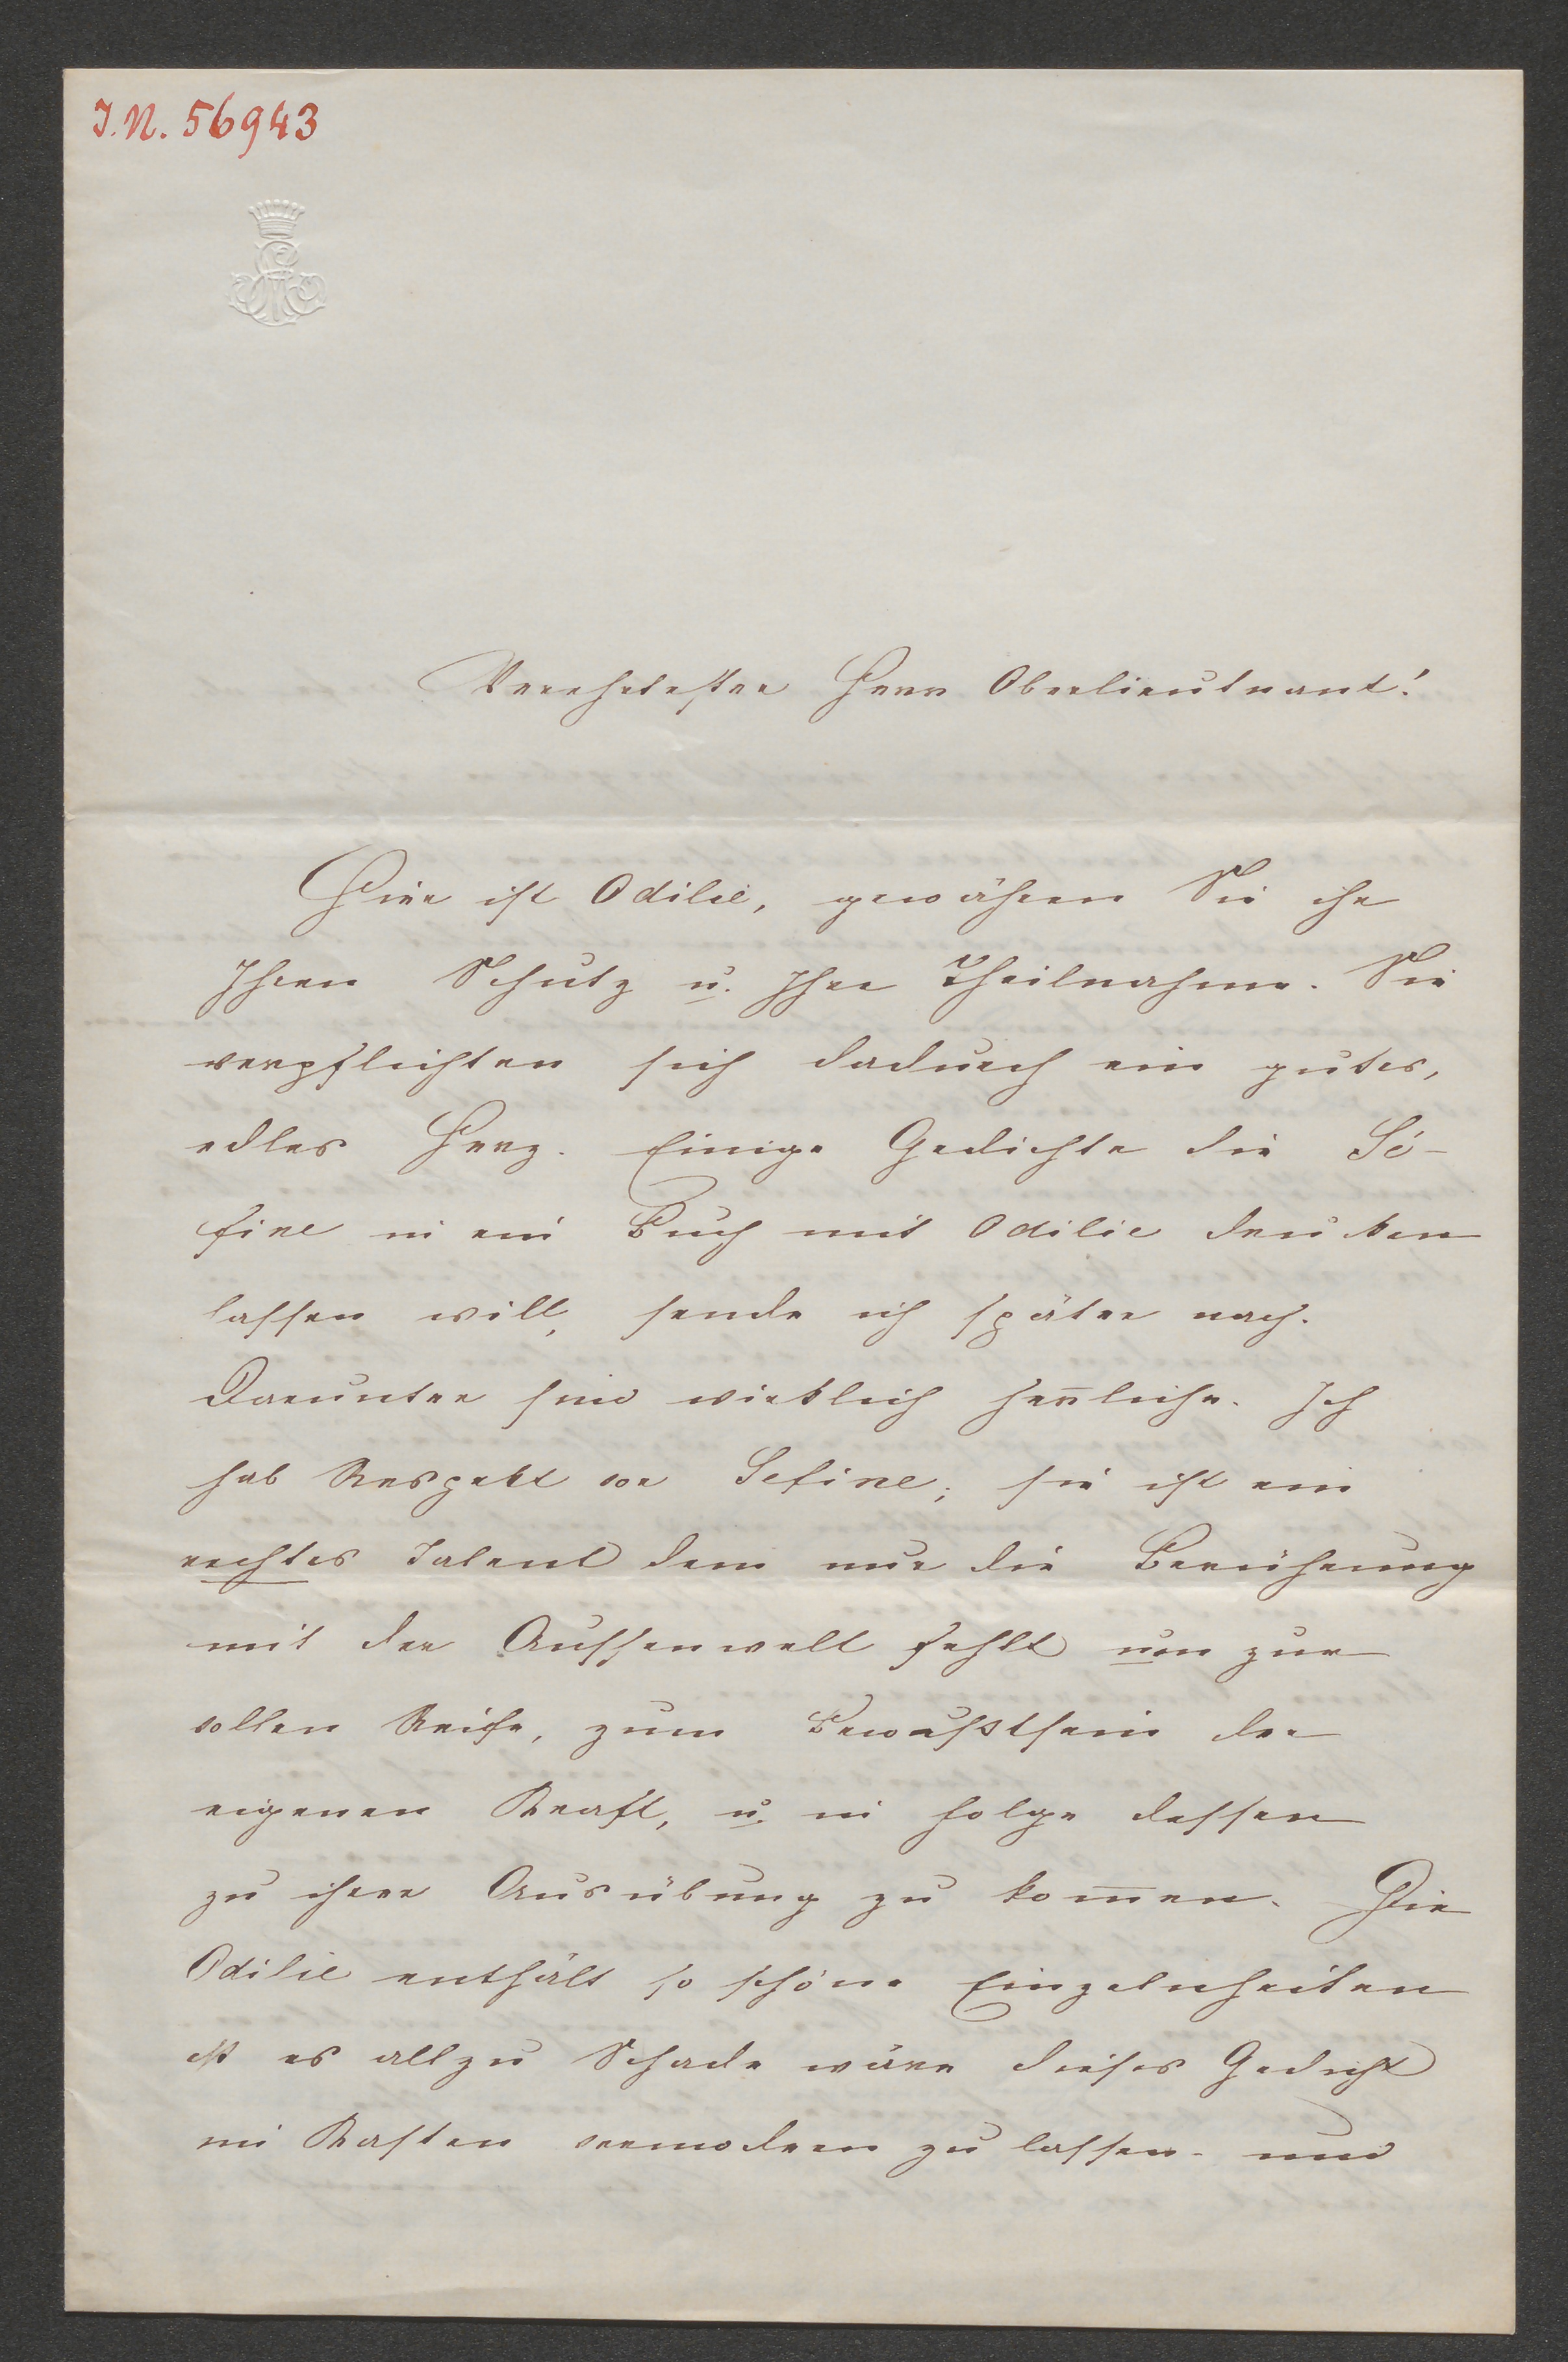 I.N. 56943
Verehrtester Herr Oberlieutnant!
Hier ist Odilie, gewähren Sie ihr
Ihren Schutz u. Ihre Theilnahme. Sie
verpflichten sich dadurch ein gutes,
edles Herz. Einige Gedichte die Sé-
fine in ein Buch mit Odilie drucken
lassen will, sende ich später nach.
Darunter sind wirklich herrliche. Ich
hab Respekt vor Sefine; sie ist ein
rechtes Talent dem nur die Berührung
mit der Aussenwelt fehlt um zur
vollen Reife, zum Bewußtsein der
eigenen Kraft, u. in Folge dessen
zu ihrer Ausübung zu kom̄en. Die
Odilie enthält so schöne Einzelnheiten
es allzu Schade wäre dieses Gedicht
im Kasten vermodern zu lassen. und